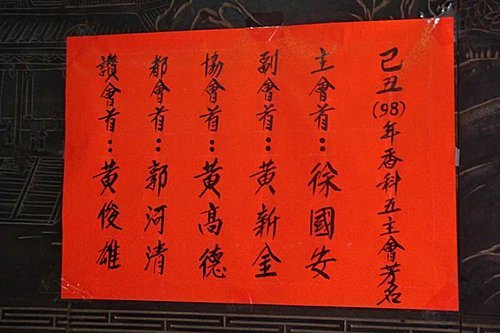 己丑(98)年香科五主會芳名
主會首：徐國安
副會首：黃新金
協會首：黃高德
都會首：郭河清
讚會首：黃俊雄